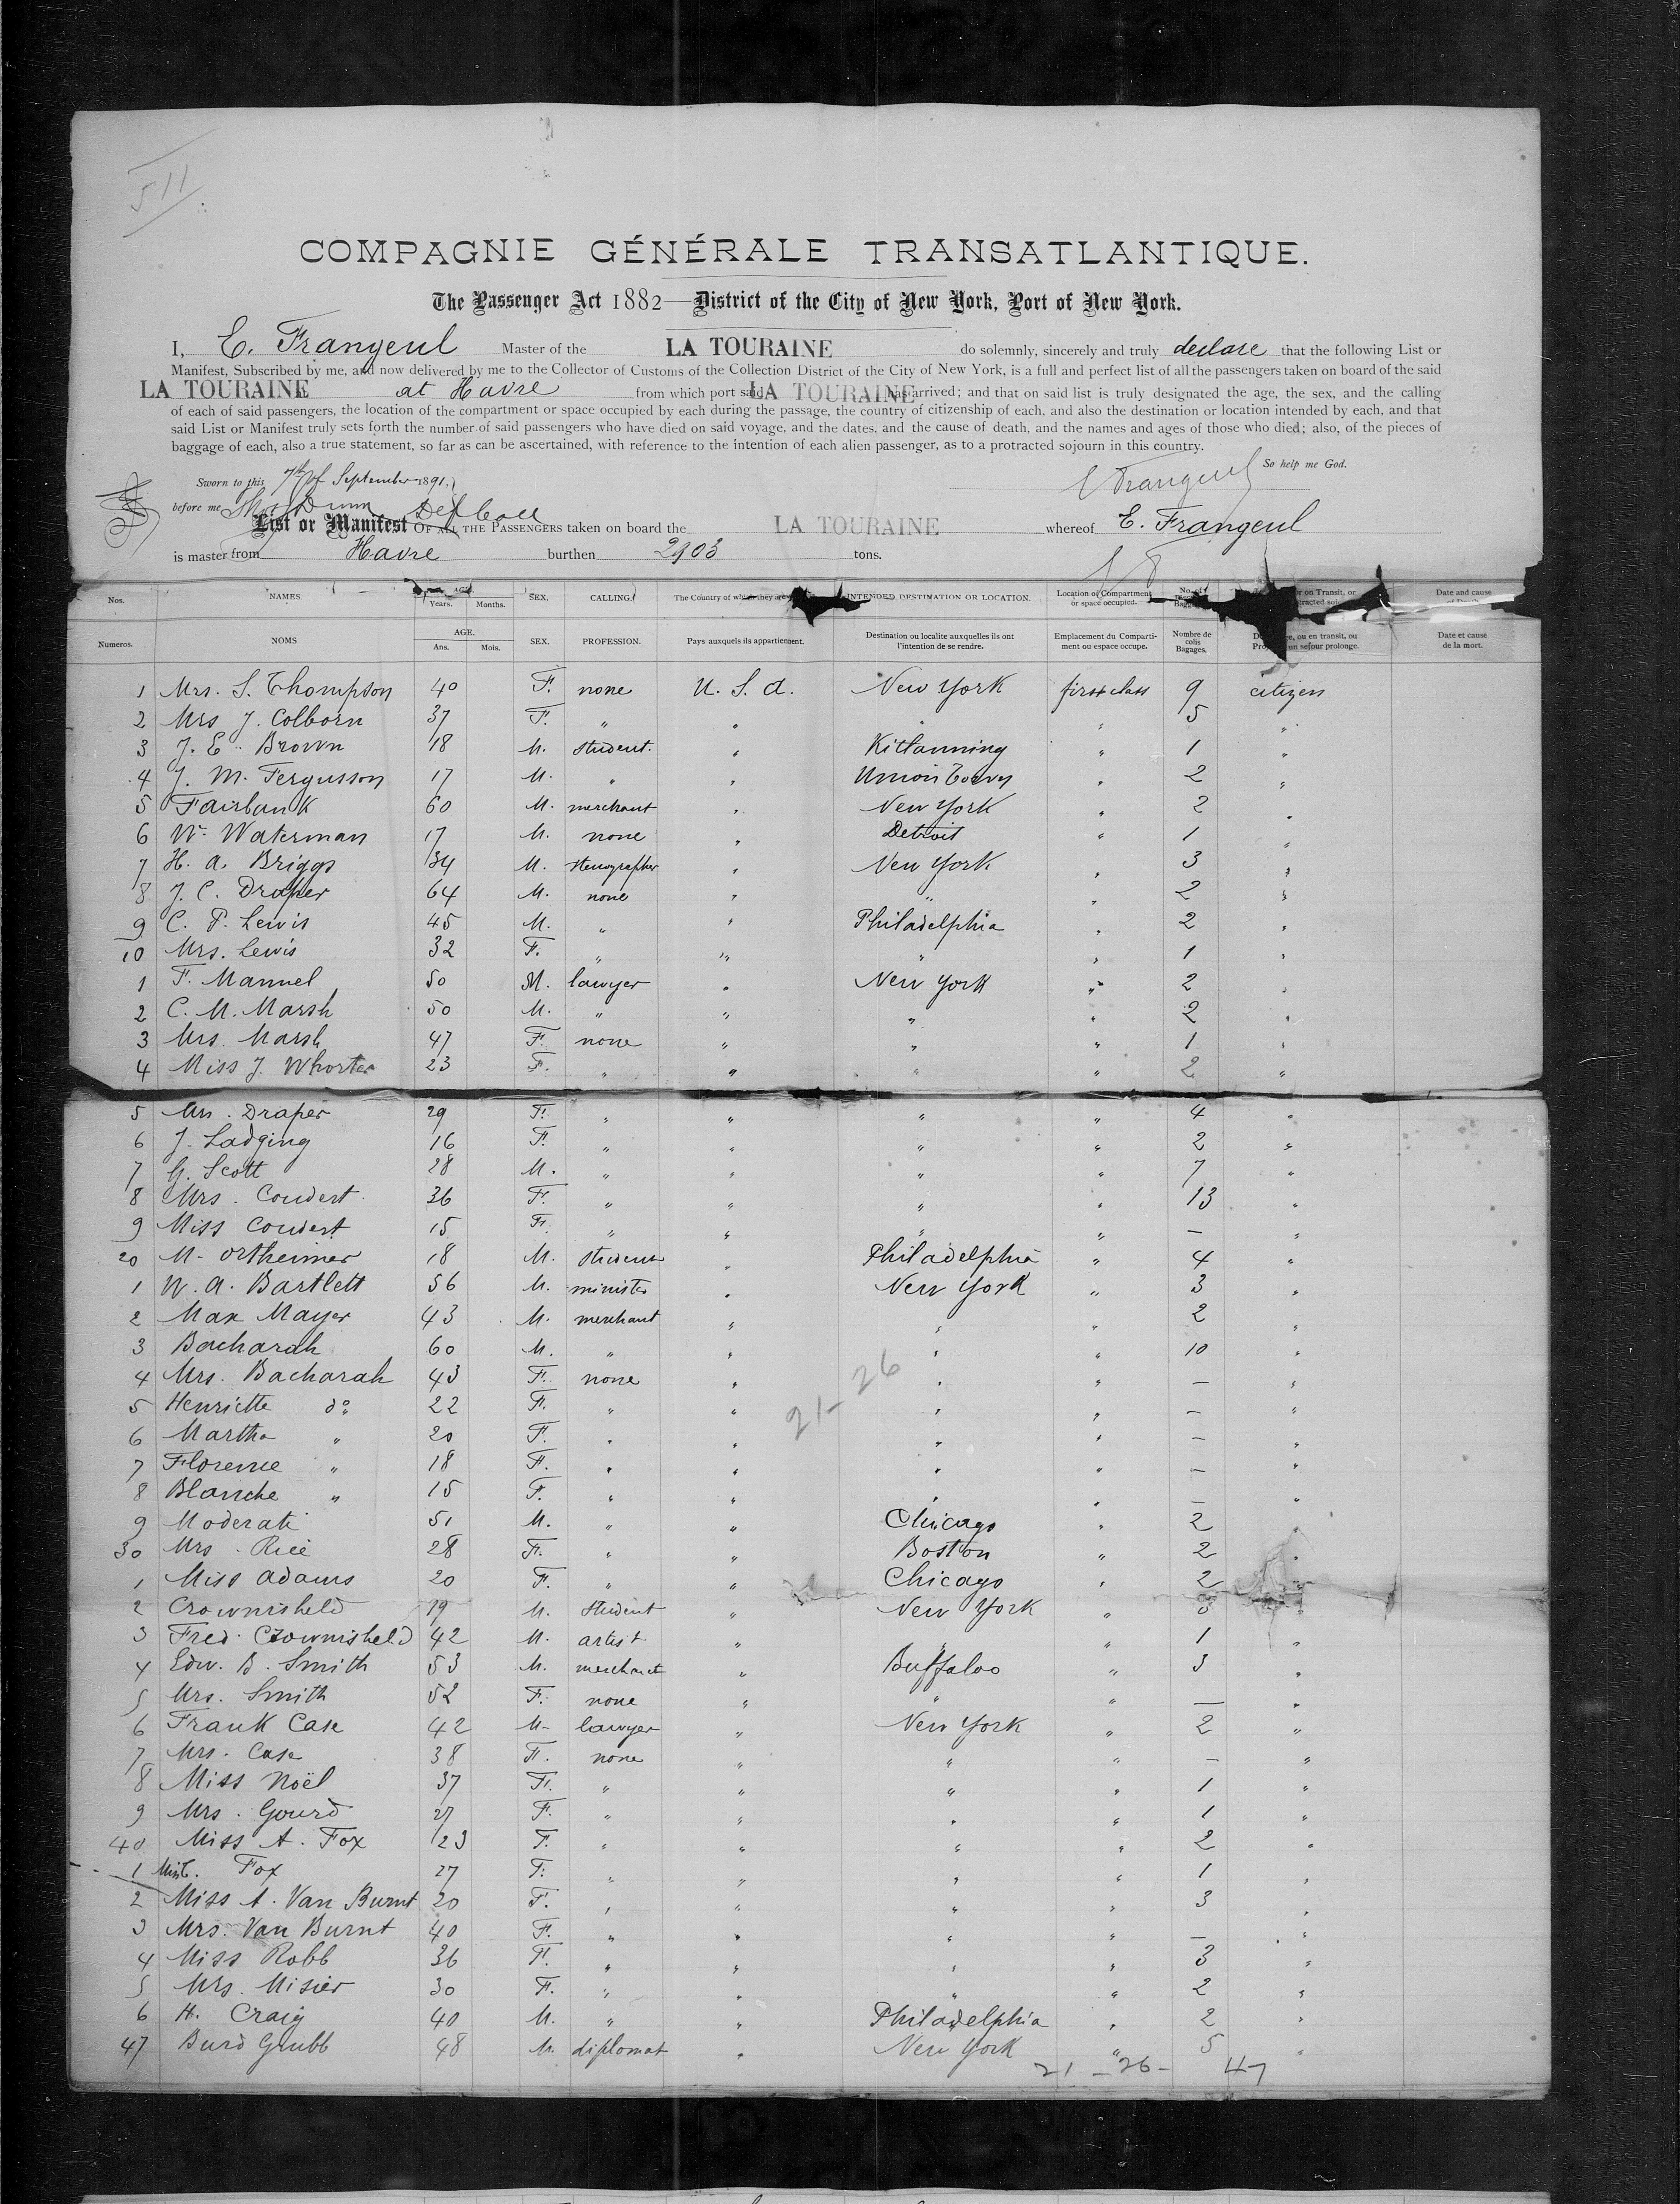 511
COMPAGNIE GÉNÉRALE TRANSATLANTIQUE.
The Passenger Act 1882—District of the City of New York, Port of New York.
I, E. Frangeul Master of the LA TOURAINE do solemnly, sincerely and truly declare that the following List or
Manifest, Subscribed by me, and now delivered by me to the Collector of Customs of the Collection District of the City of New York, is a full and perfect list of all the passengers taken on board of the said
LA TOURAINE at Havre from which port said LA TOURAINE has arrived; and that on said list is truly designated the age, the sex, and the calling
of each of said passengers, the location of the compartment or space occupied by each during the passage, the country of citizenship of each, and also the destination or location intended by each, and that
said List or Manifest truly sets forth the number of said passengers who have died on said voyage, and the dates, and the cause of death, and the names and ages of those who died; also, of the pieces of
baggage of each, also a true statement, so far as can be ascertained, with reference to the intention of each alien passenger, as to a protracted sojourn in this country.
So help me God.
Sworn to this 7th of September 1891. E Frangeul
before me Dunn
List or Manifest OF ALL THE PASSENGERS taken on board the LA TOURAINE whereof E. Frangeul
is master from Havre burthen 2903 tons.
Nos. NAMES. AGE. Years. Months. SEX. CALLING. The Country of which they are INTENDED DESTINATION OR LOCATION. Location of Compartment or space occupied. No. of on Transit, or Date and cause
Numeros. NOMS AGE. Ans. Mois. SEX. PROFESSION. Pays auxquels ils appartiennent. Destination ou localite auxquelles ils ont l'intention de se rendre. Emplacement du Compartiment ou espace occupe. Nombre de colis Bagages. ou en transit, ou un sejour prolonge. Date et cause de la mort.
1 Mrs. S. Thompson 40 F. none U. S. A. New York first class 9 citizen
2 Mrs J. Colborn 37 F. " " " " 5 "
3 J. E. Brown 18 M. student. " Kittanning " 1 "
4 J. M. Fergusson 17 M. " " Union " 2 "
5 Fairbank 60 M. merchant " New York " 2 "
6 W. Waterman 17 M. none " Detroit " 1 "
7 H. A. Briggs 34 M. stenographer " New York " 3 "
8 J. C. Draper 64 M. none " " " 2 "
9 C. P. Lewis 45 M. " " Philadelphia " 2 "
10 Mrs. Lewis 32 F. " " " " 1 "
1 F. Mannel 50 M. lawyer " New York " 2 "
2 C. M. Marsh 50 M. " " " " 2 "
3 Mrs. Marsh 47 F. none " " " 1 "
4 Miss J. Whorter 23 F. " " " " 2 "
5 Draper 29 F. " " " " 4 "
6 J. Ladging 16 F. " " " " 2 "
7 G. Scott 28 M. " " " " 7 "
8 Mrs. Coudert 36 F. " " " " 13 "
9 Miss Coudert 15 F. " " " " — "
20 M. Ortheimer 18 M. student " Philadelphia " 4 "
1 W. A. Bartlett 56 M. minister " New York " 3 "
2 Max Mayer 43 M. merchant " " " 2 "
3 Bacharah 60 M. " " " " 10 "
4 Mrs. Bacharah 43 F. none " " " — "
5 Henriette do 22 F. " " " " — "
6 Martha " 20 F. " " " " — "
7 Florence " 18 F. " " " " — "
8 Blanche " 15 F. " " " " — "
21- 26
9 Moderati 51 M. " " Chicago " 2 "
30 Mrs. Rice 28 F. " " Boston " 2 "
1 Miss Adams 20 F. " " Chicago " 2 "
2 Crownisheld 19 M. student " New York "
3 Fred. Crownisheld 42 M. artist " " " 1 "
4 Edw. B. Smith 53 M. merchant " Buffaloo " 3 "
5 Mrs. Smith 52 F. none " " " — "
6 Frank Case 42 M. lawyer " New York " 2 "
7 Mrs. Case 38 F. none " " " — "
8 Miss Noël 37 F. " " " " 1 "
9 Mrs. Gourd 27 F. " " " " 1 "
40 Miss A. Fox 23 F. " " " " 2 "
1 Fox 27 F. " " " " 1 "
2 Miss A. Van Burnt 20 F. " " " " 3 "
3 Mrs. Van Burnt 40 F. " " " " — "
4 Miss Robb 36 F. " " " " 3 "
5 Mrs. Misier 30 F. " " " " 2 "
6 H. Craig 40 M. " " Philadelphia " 2 "
47 Burd Grubb 48 M. diplomat " New York " 5 "
21 - 26 - 47